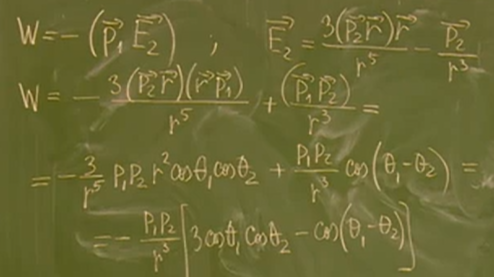 W = - (p⃗₁ E⃗₂) ; E⃗₂ = 3(p⃗₂r⃗)r⃗ / r⁵ - p⃗₂ / r³
W = - 3(p⃗₂r⃗)(r⃗p⃗₁) / r⁵ + (p⃗₁p⃗₂) / r³ =
= - 3 / r⁵ p₁p₂ r² cosθ₁ cosθ₂ + p₁p₂ / r³ cos(θ₁-θ₂) =
= - p₁p₂ / r³ [3 cosθ₁ cosθ₂ - cos(θ₁-θ₂)]